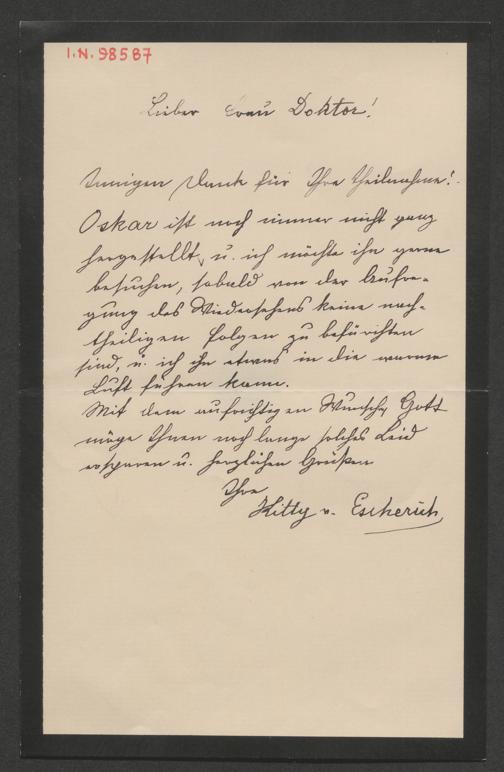 I.N. 98587
Lieber Frau Doktor!
Innigen Dank für Ihre Theilnahme!
Oskar ist noch immer nicht ganz
hergestellt, u. ich möchte ihn gerne
besuchen, sobald von der Aufre-
gung des Wiedersehens keine nach-
theiligen Folgen zu befürchten
sind, u. ich ihn etwas in die warme
Luft führen kann.
Mit dem aufrichtigen Wunsche, Gott
möge Ihnen noch lange solches Leid
ersparen u. herzlichen Grüßen
Ihre
Kitty v. Escherich